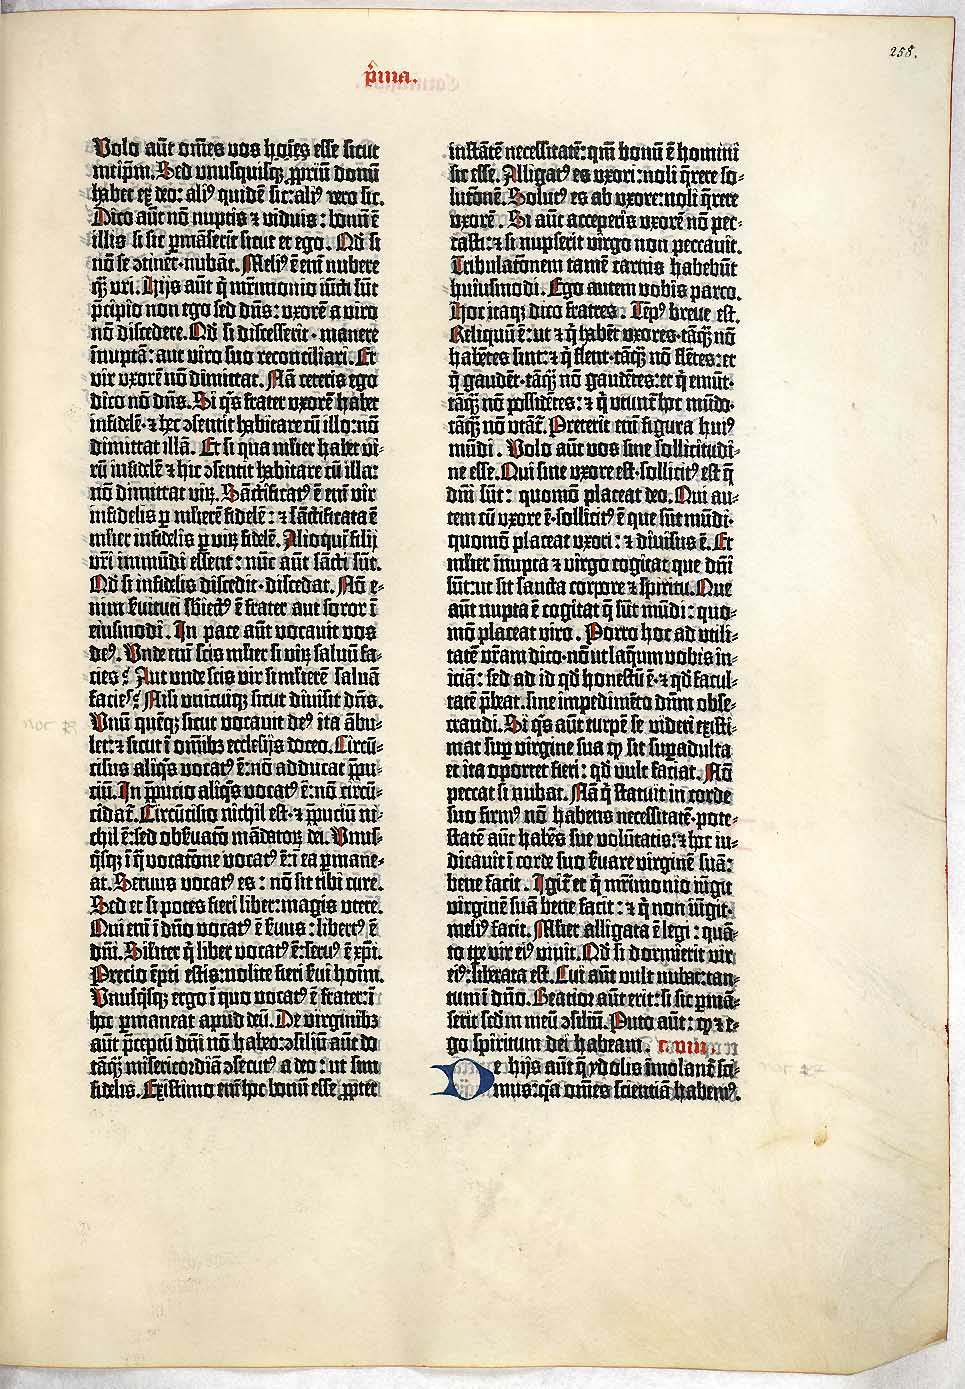 258.
p̄ma.
Volo aūt om̄es vos hoīes esse sicut
meip̄m. Sed vnusquisqꝫ ꝓpriū donū
habet ex deo: aliꝰ quidē sic: aliꝰ vero sic.
Dico aūt nō nuptis ⁊ viduis: bonū ē
illis si sic ꝑmāserit sicut et ego. Qd̄ si
nō se ꝯtinēt·nubāt. Meliꝰ ē em̄ nubere
q̄ꝫ vri. Hijs aūt q̄ mr̄imonio iūcti sūt
p̄cipio non ego sed dn̄s: vxorē a viro
nō discedere. Qd̄ si discesserit·manere
īnuptā: aut viro suo reconciliari. Et
vir vxorē nō dimittat. Nā ceteris ego
dico nō dn̄s. Si q̄s frater vxorē habet
infidelē·⁊ hec ꝯsentit habitare cū illo: nō
dimittat illā. Et si qua mlier habet vi-
rū infidelē ⁊ hic ꝯsentit habitare cū illa:
nō dimittat virꝫ. Sāctificatꝰ ē em̄ vir
infidelis ꝑ mlierē fidelē: ⁊ sāctificata ē
mlier infidelis ꝑ virꝫ fidelē. Alioquī filij
vr̄i immūdi essent: nūc aūt sācti sūt.
Qd̄ si infidelis discedit·discedat. Nō e-
nim s̄uituti sb̄iectꝰ ē frater aut soror ī
eiusmodi. In pace aūt vocauit vos
deꝰ. Vnde em̄ scis mlier si virꝫ saluū fa-
cies? Aut vnde scis vir si mlierē saluā
facies? Nisi vnicuiqꝫ sicut diuisit dn̄s.
Vnū quēqꝫ sicut vocauit deꝰ ita ābu-
let: ⁊ sicut ī om̄ibꝫ ecclesijs doceo. Circū-
cisus aliq̄s vocatꝰ ē: nō adducat p̄pu-
ciū. In p̄pucio aliq̄s vocatꝰ ē: nō circū-
cidat̄. Circūcisio nichil est·⁊ p̄puciū ni-
chil ē: sed obs̄uato mādatoꝝ dei. Vnus-
q̄sqꝫ ī q̄ vocatōne vocatꝰ ē: ī ea ꝑmane-
at. Seruus vocatꝰ es: nō sit tibi cure.
Sed et si potes fieri liber: magis vtere.
Qui em̄ ī dn̄o vocatꝰ ē s̄uus: libertꝰ ē
dn̄i. Siliter q̄ liber vocatꝰ ē: seruꝰ ē xp̄i.
Precio ēpti estis: nolite fieri s̄ui hoīm.
Vnusq̄sqꝫ ergo ī quo vocatꝰ ē frater: ī
hoc ꝑmaneat apud deū. De virginibꝫ
aūt p̄ceptū dn̄i nō habeo: ꝯsiliū aūt do
tāq̄ꝫ misericordiā ꝯsecutꝰ a deo: ut sim
fidelis. Existimo em̄ hoc bonū esse ꝓpter
instātē necessitatē: qm̄ bonū ē homini
sic esse. Alligatꝰ es vxori: noli q̄rere so-
lutōnē. Solutꝰ es ab vxore: noli q̄rere
vxorē. Si aūt acceperis vxorē nō pec-
casti: ⁊ si nupserit virgo non peccauit.
Tribulatōnem tamē carnis habebūt
huiusmodi. Ego autem vobis parco.
Hoc itaqꝫ dico fratres. Tēpꝰ breue est.
Reliquū ē: ut ⁊ q̄ habēt vxores·tāq̄ꝫ nō
habētes sint: ⁊ q̄ flent·tāq̄ꝫ nō flētes: et
q̄ gaudēt·tāq̄ꝫ nō gaudētes: et q̄ emūt·
tāq̄ꝫ nō possidētes: ⁊ q̄ vtunt̄ hoc mūdo·
tāq̄ꝫ nō vtāt̄. Preterit em̄ figura huiꝰ
mūdi. Volo aūt vos sine sollicitudi-
ne esse. Qui sine vxore est·sollicitꝰ est q̄
dn̄i sūt: quomō placeat deo. Qui au-
tem cū vxore ē·sollicitꝰ ē que sūt mūdi·
quomō placeat vxori: ⁊ diuisus ē. Et
mlier īnupta ⁊ virgo cogitat que dn̄i
sūt: ut sit sancta corpore ⁊ spiritu. Que
aūt nupta ē cogitat q̄ sūt mūdi: quo-
mō placeat viro. Porro hoc ad vtili-
tatē vr̄am dico·nō ut laq̄um vobis in-
iciā: sed ad id qd̄ honestū ē·⁊ qd̄ facul-
tatē p̄beat·sine impedimēto dn̄m obse-
crandi. Si q̄s aūt turpē se videri existi-
mat suꝑ virgine sua ꝙ sit suꝑadulta
et ita oportet fieri: qd̄ vult faciat. Nō
peccat si nubat. Nā q̄ statuit in corde
suo firmꝰ nō habens necessitatē·pote-
statē aūt habēs sue volūtatis: ⁊ hoc iu-
dicauit ī corde suo s̄uare virginē suā:
bene facit. Igit̄ et q̄ mr̄imonio iūgit
virginē suā bene facit: ⁊ q̄ non iūgit·
meliꝰ facit. Mlier alligata ē legi: quā-
to tpe vir eiꝰ viuit. Qd̄ si dormierit vir
eiꝰ: liberata est. Cui aūt vult nubat: tan-
tum ī dn̄o. Beatior aūt erit: si sic ꝑmā-
serit scd̄m meū ꝯsiliū. Puto aūt: ꝙ ⁊ e-
go spiritum dei habeam. c. viii.
De hijs aūt q̄ ydolis īmolant̄ sci-
mus: q̄a om̄es scientiā habemꝰ.